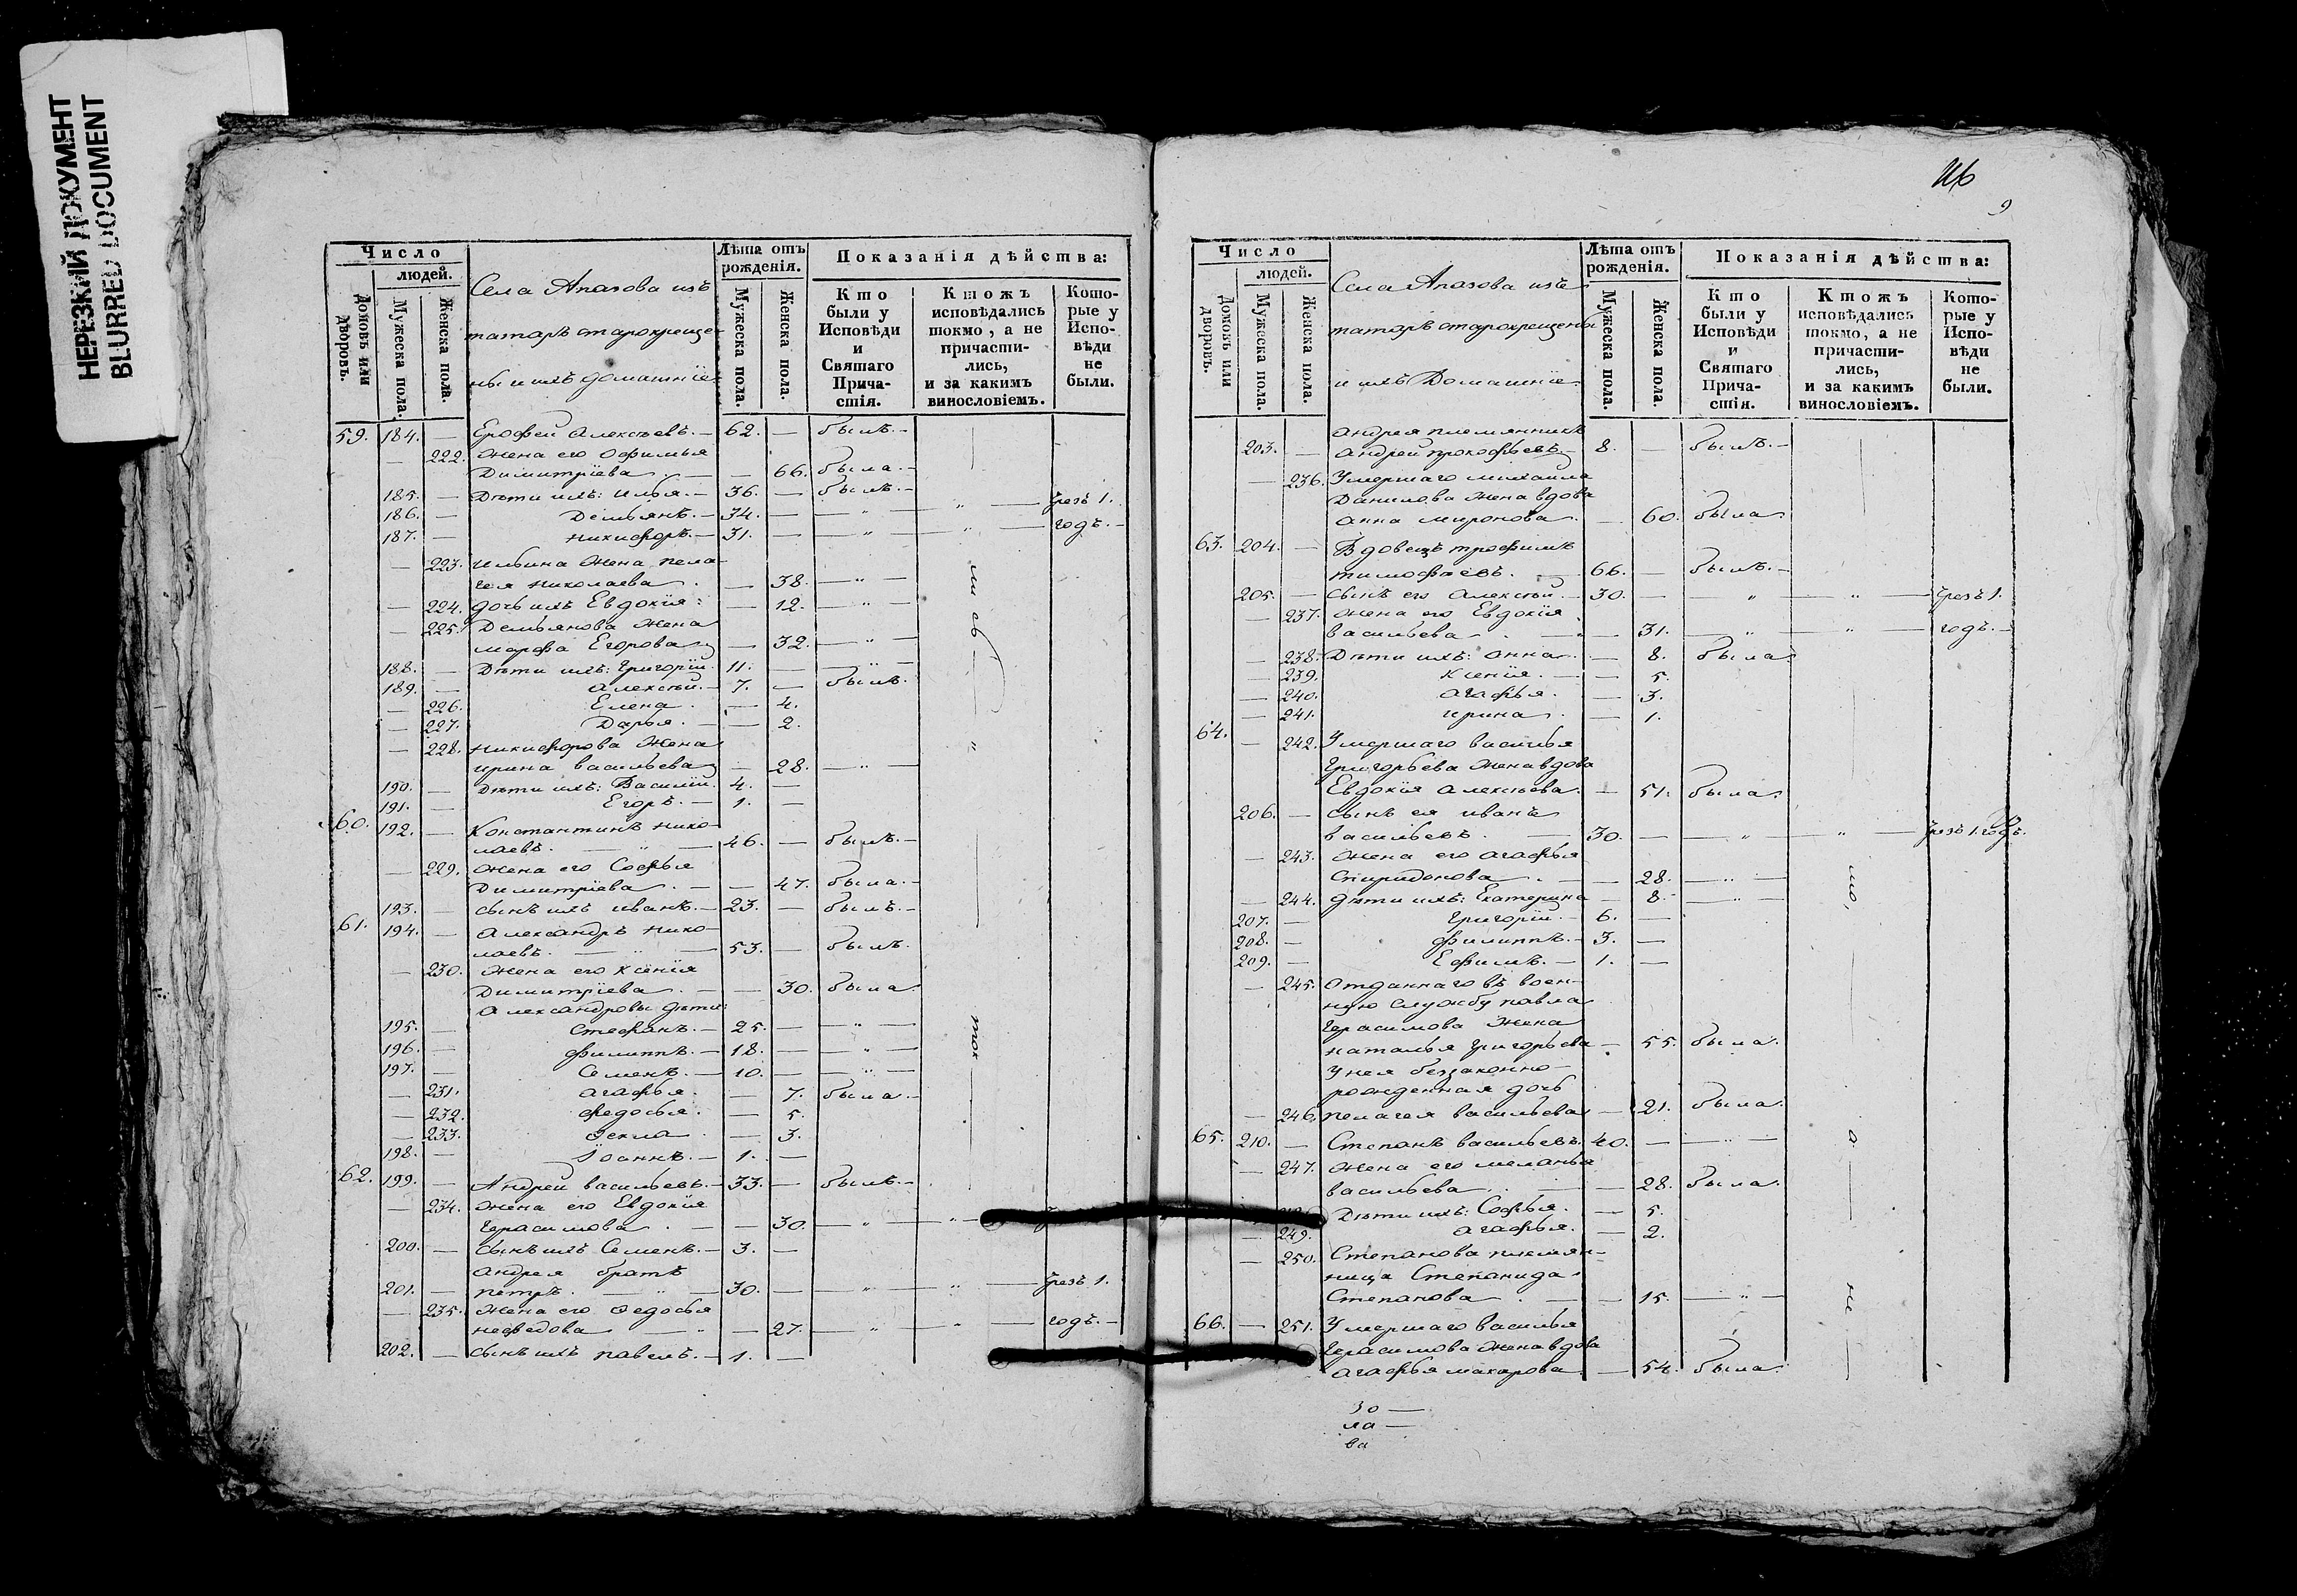 НЕРЕЗКИЙ ДОКУМЕНТ
BLURRED DOCUMENT
Число
людей.
Домовъ или дворовъ.
Мужеска пола.
Женска пола.
Села Апазова изъ
татаръ старокреще-
ны и ихъ домашніе
Лѣта отъ рожденія.
Мужеска пола.
Женска пола.
Показанія дѣйства:
Кто были у Исповѣди и Святаго Прича-стія.
Ктожъ исповѣдались токмо, а не причасти-лись, и за какимъ винословіемъ.
Кото-рые у Испо-вѣди не были.
59. 184. — Ерофей Алексѣевъ. — 62. — былъ. —
— 222. Жена его Офимья
Димитріева. — — 66. была. —
185. — Дѣти ихъ: Илья. — 36. — былъ. —
186. — Демьянъ. — 34. — — „ — „ — чрезъ 1.
187. — Никифоръ. — 31. — — „ — „ — годъ. —
— 223. Ильина жена Пела-
гея Николаева. — 38. — „ —
— 224. Дочь ихъ Евдокія: — 12. — „ —
— 225. Демьянова жена
Марфа Егорова — 32. — „ —
188. — Дѣти ихъ: Григорій. 11. — — „ —
189. — Алексѣй. — 7. — былъ.
— 226. Елена. — 4.
— 227. Дарья. — — 2.
— 228. Никифорова жена
Ирина Васильева — 28. — „ —
190. — Дѣти ихъ: Василій. 4. —
191. — Егоръ. — 1. —
60. 192. — Константинъ Нико-
лаевъ. — „ — 46. — былъ. —
— 229. Жена его Софья
Димитріева. — — 47. была. —
193. — Сынъ ихъ Иванъ. — 23. — былъ. —
61. 194. — Александръ Нико-
лаевъ. — „ — 53. — былъ.
— 230. Жена его Ксенія
Димитріева. — — 30. была.
Александровы дѣти:
195. — Стефанъ. — 25. — — „ —
196. — Филиппъ. — 18. — — „ —
197. — Семенъ. — 10. — — „ —
— 231. Агафья. — 7. была. —
— 232. Федосья. — 5.
— 233. Ѳекла. — 3.
198. — Іоаннъ. — 1. —
62. 199. — Андрей Васильевъ. — 33. — былъ. —
— 234. Жена его Евдокія
Герасимова. — — 30. — „ — „
200. — Сынъ ихъ Семенъ. — 3. —
Андрея братъ
201. — Петръ. — „ — 30. — — „ — „ — чрезъ 1.
— 235. Жена его Ѳедосья
Нефедова — „ — 27. — „ — „ — годъ. —
202. — Сынъ ихъ Павелъ. — 1. —
9
Число
людей.
Домовъ или дворовъ.
Мужеска пола.
Женска пола.
Села Апазова изъ
татаръ старокрещены
и ихъ Домашніе
Лѣта отъ рожденія.
Мужеска пола.
Женска пола.
Показанія дѣйства:
Кто были у Исповѣди и Святаго Прича-стія.
Ктожъ исповѣдались токмо, а не причасти-лись, и за какимъ винословіемъ.
Кото-рые у Испо-вѣди не были.
Андрея племянникъ
203. — Андрей Прокофьевъ. 8. — былъ. —
— 236. Умершаго Михаила
Данилова жена вдова
Анна Миронова. — 60. была
63. 204. — Вдовецъ Трофимъ
Тимофеевъ. — 66. — былъ. —
205. — Сынъ его Алексѣй. — 30. — „ — „ — чрезъ 1.
— 237. Жена его Евдокія
Васильева. — — 31. — „ — „ — годъ. —
— 238. Дѣти ихъ: Анна. — 8. была.
— 239. Ксенія. — — 5.
— 240. Агафья. — 3.
— 241. Ирина. — 1.
64. — 242. Умершаго Василья
Григорьева жена вдова
Евдокія Алексѣева. — 51. была.
206. — Сынъ ея Иванъ
Васильевъ. — 30. — — „ — „ — чрезъ 1. годъ.
— 243. Жена его Агафья
Спиридонова. — — 28. — „ —
— 244. Дѣти ихъ: Екатерина — 8. — „ —
207. — Григорій. — 6. —
208. — Филиппъ. — 3. —
209. — Ефимъ. — 1. —
— 245. Отданнаго въ воен-
ную службу Павла
Герасимова жена
Наталья Григорьева — 55. была.
У нея беззаконно-
рожденная дочь
— 246. Пелагея Васильева — 21. была.
65. 210. — Степанъ Васильевъ. 40. — — „ —
— 247. Жена его Меланья
Васильева. — — 28. была.
Дѣти ихъ: Софья. — 5.
— 249. Агафья. — 2.
— 250. Степанова племян-
ница Степанида
Степанова. — — 15. — „ —
66. — 251. Умершаго Василья
Герасимова жена вдова
Агафья Макарова — 54. была.